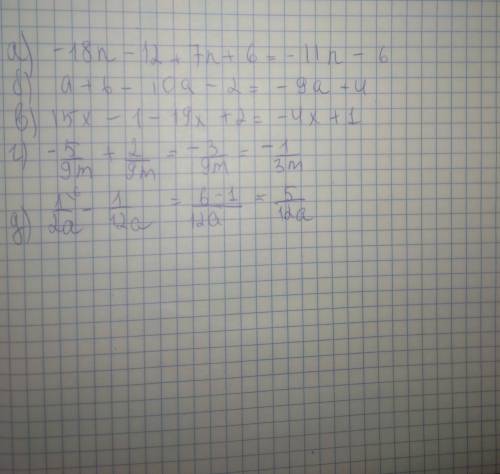 а) -18n - 12 + 7n + 6 = -11n - 6
б) a + 6 - 10a - 2 = -9a + 4
в) 15x - 1 - 19x + 2 = -4x + 1
г) -5/9m + 2/9m = -3/9m = -1/3m
д) 1/2a - 1/12a = 6-1/12a = 5/12a